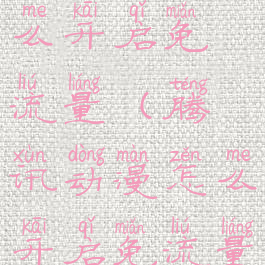 me kāi qǐ miǎn
么开启免
liú liáng téng
流量(腾
xùn dòng màn zěn me
讯动漫怎么
kāi qǐ miǎn liú liáng
开启免流量